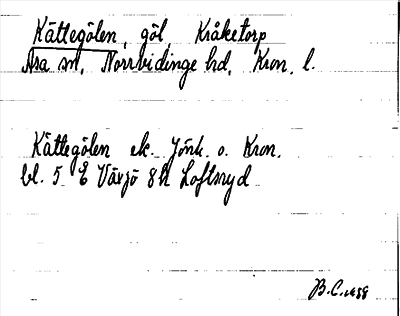 Kättegölen, göl, Kråketorp
Asa sn, Norrvidinge hd, Kron. l.
Kättegölen ek. Jönk. o. Kron.
bl. 5 E Växjö 8h Loftsryd
B.C. 1958